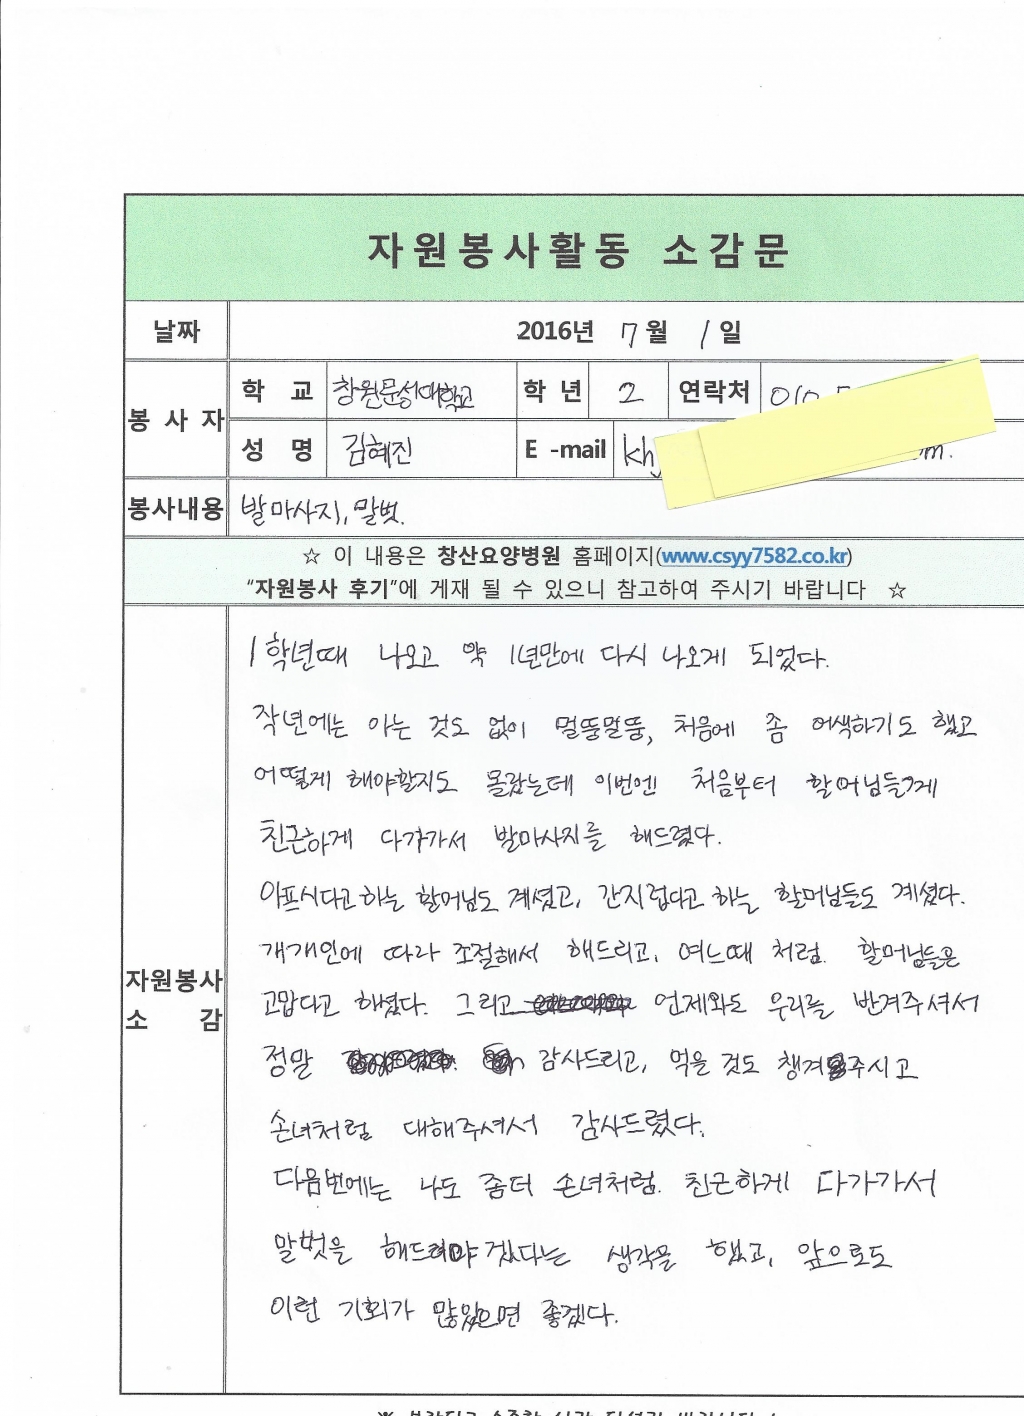 자원봉사활동 소감문
날짜 2016년 7월 1일
봉사자 학 교 창원문성대학교 학 년 2 연락처 010
성 명 김혜진 E -mail
봉사내용 발마사지, 말벗.
☆ 이 내용은 창산요양병원 홈페이지(www.csyy7582.co.kr)
“자원봉사 후기”에 게재 될 수 있으니 참고하여 주시기 바랍니다 ☆
자원봉사
소 감
1학년때 나오고 약 1년만에 다시 나오게 되었다.
작년에는 아는 것도 없이 멀뚱멀뚱, 처음에 좀 어색하기도 했고
어떻게 해야할지도 몰랐는데 이번엔 처음부터 할머님들께
친근하게 다가가서 발마사지를 해드렸다.
아프시다고 하는 할머님도 계셨고, 간지럽다고 하는 할머님들도 계셨다.
개개인에 따라 조절해서 해드리고, 여느때 처럼. 할머님들은
고맙다고 하셨다. 그리고 언제와도 우리를 반겨주셔서
정말 감사드리고, 먹을 것도 챙겨주시고
손녀처럼 대해주셔서 감사드렸다.
다음번에는 나도 좀더 손녀처럼. 친근하게 다가가서
말벗을 해드려야 겠다는 생각을 했고, 앞으로도
이런 기회가 많았으면 좋겠다.